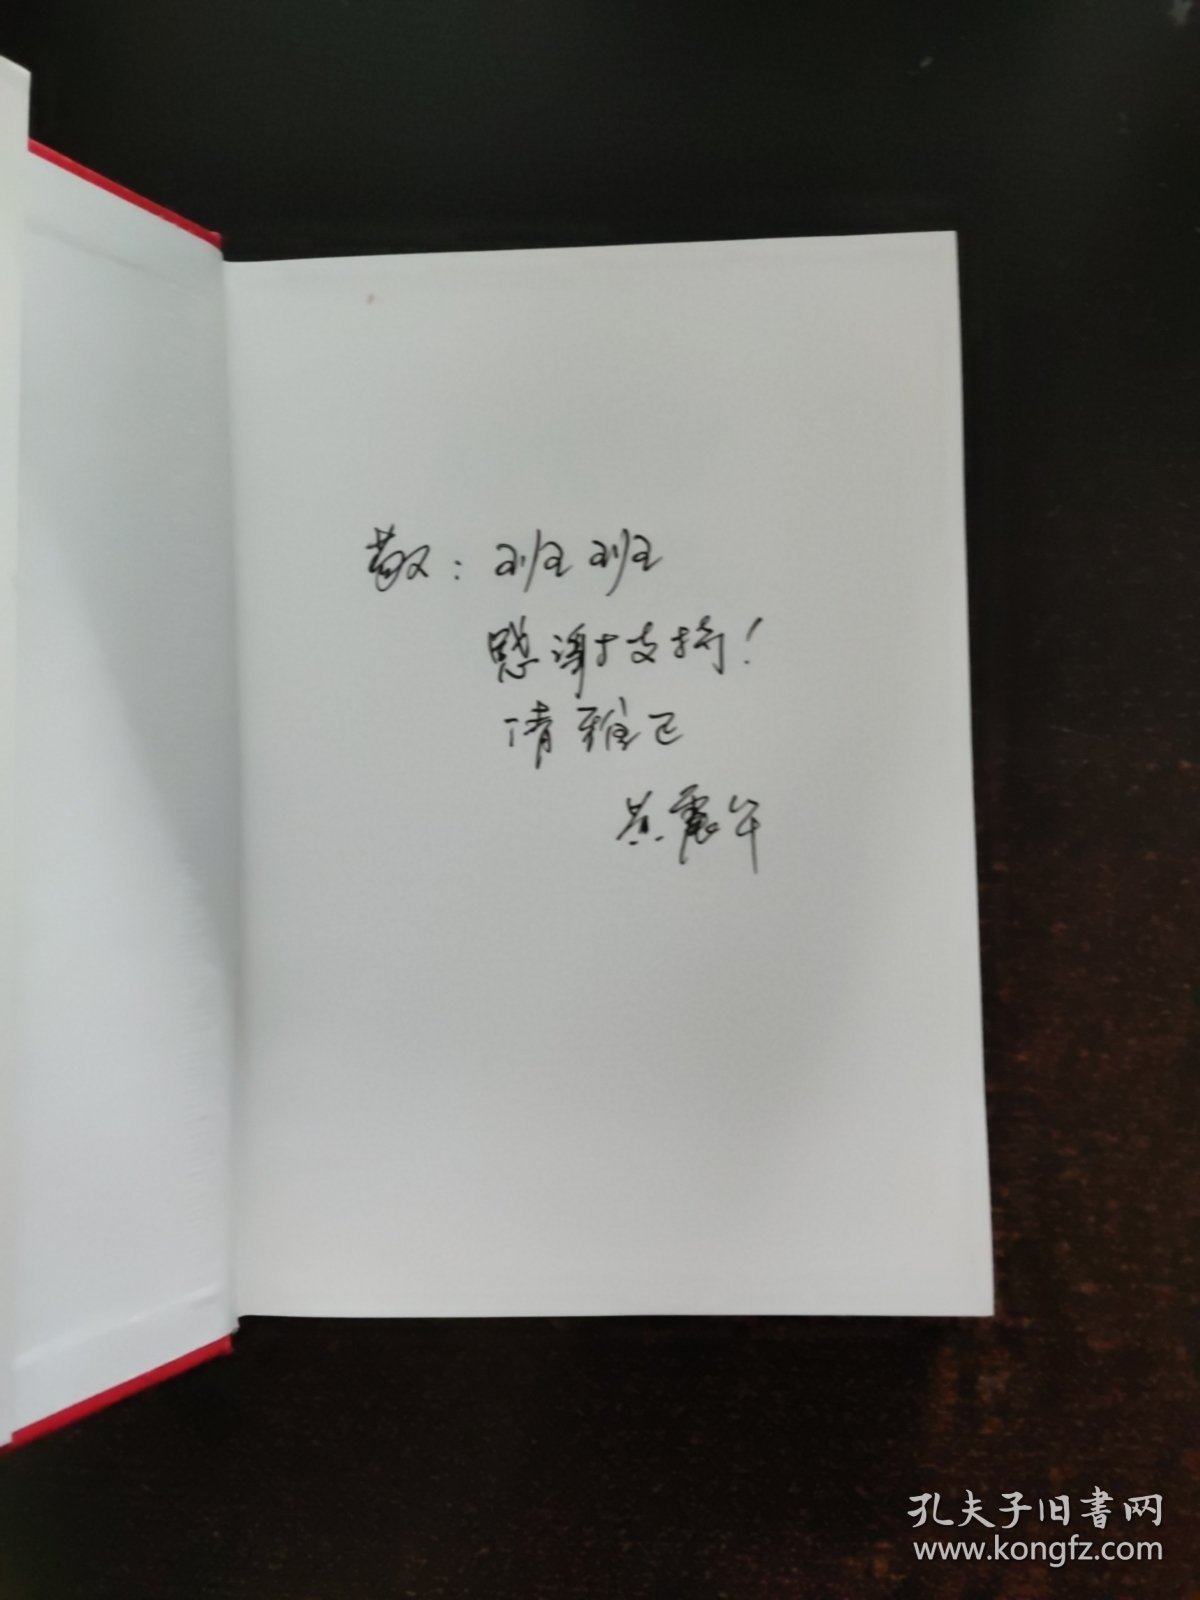 敬：班班
感谢支持！
请雅正
黄震午
孔夫子旧书网
www.kongfz.com